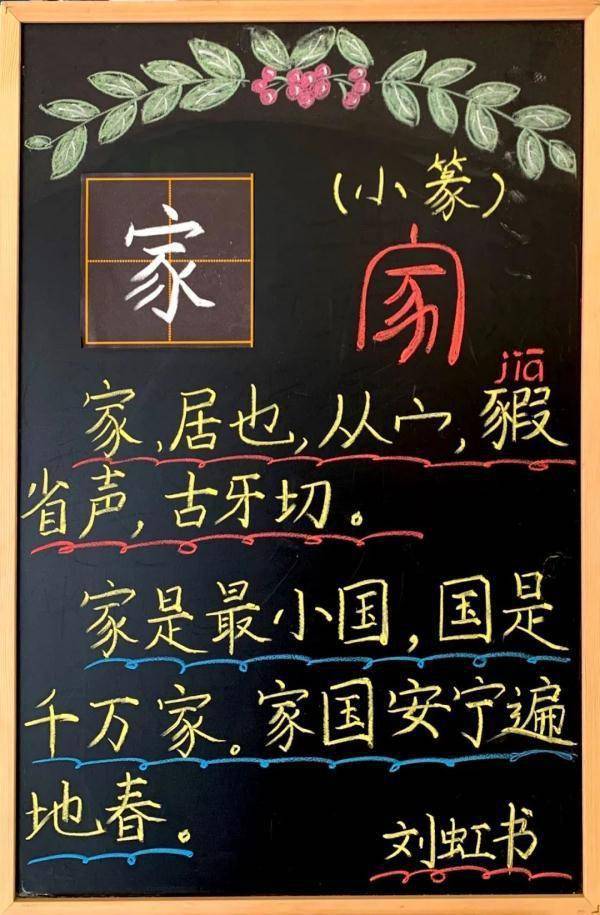 家
（小篆）
家
jiā
家，居也，从宀，豭
省声，古牙切。
家是最小国，国是
千万家。家国安宁遍
地春。
刘虹书